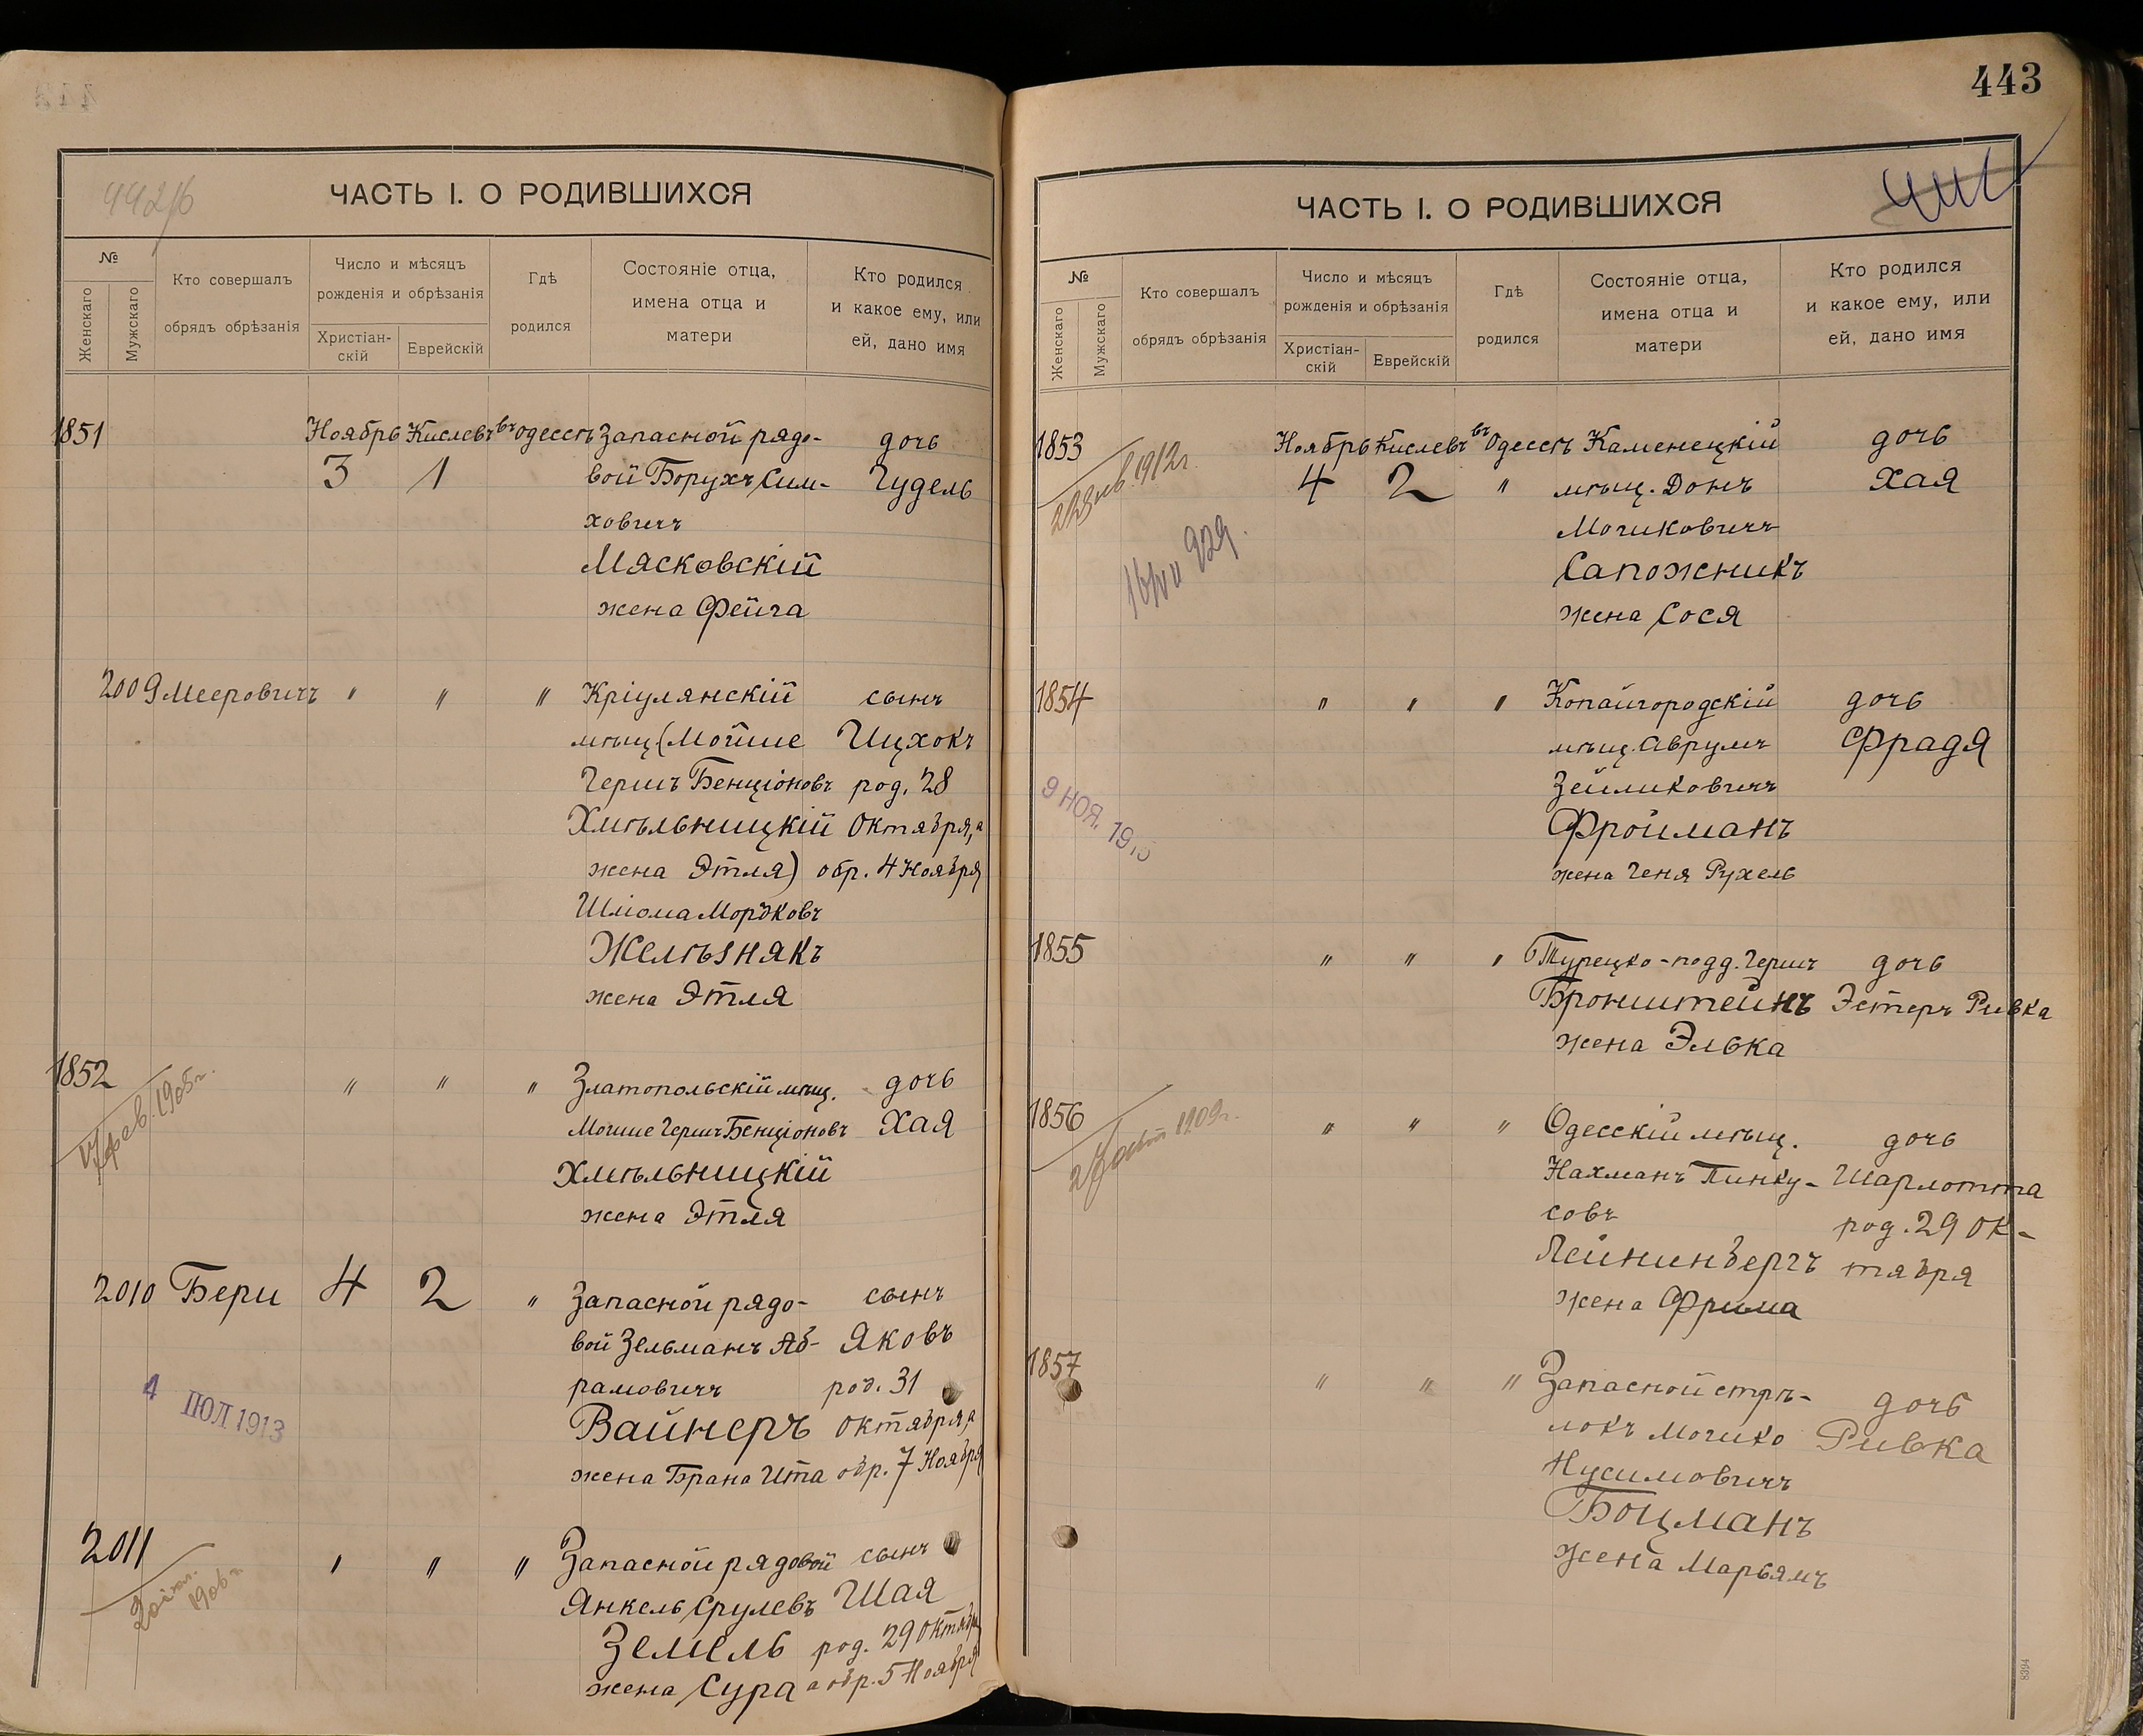 443
ЧАСТЬ I. О РОДИВШИХСЯ
№
Женскаго
Мужскаго
Кто совершалъ
обрядъ обрѣзанія
Число и мѣсяцъ
рожденія и обрѣзанія
Христіан-
скій
Еврейскій
Гдѣ
родился
Состояніе отца,
имена отца и
матери
Кто родился
и какое ему, или
ей, дано имя
1851 Ноябрь Кислевъ въ Одессѣ Запасной рядо- дочь
3 1 вой Борухъ Сим- Гудель
ховичъ
Мясковскій
жена Фейга
2009 Мееровичъ " " " Кріулянскій сынъ
мѣщ. (Мойше Ицхокъ
Гершъ Бенціоновъ род. 28
Хмѣльницкій Октября, а
жена Этля) обр. 4 Ноября
Шліома Мордковъ
Желѣзнякъ
жена Этля
1852 " " " Златопольскій мѣщ. дочь
Мойше Гершъ Бенціоновъ Хая
Хмѣльницкій
жена Этля
2010 Бери 4 2 " Запасной рядо- сынъ
вой Зельманъ Аб- Яковъ
рамовичъ род. 31
Вайнеръ Октября, а
жена Брана Ита обр. 7 Ноября
4 ІЮЛ 1913
2011 " " " Запасной рядовой сынъ
Янкель Срулевъ Шая
Земель род. 29 Октября
жена Сура а обр. 5 Ноября
1906 г.
ЧАСТЬ I. О РОДИВШИХСЯ
№
Женскаго
Мужскаго
Кто совершалъ
обрядъ обрѣзанія
Число и мѣсяцъ
рожденія и обрѣзанія
Христіан-
скій
Еврейскій
Гдѣ
родился
Состояніе отца,
имена отца и
матери
Кто родился
и какое ему, или
ей, дано имя
1853 Ноябрь Кислевъ въ Одессѣ Каменецкій дочь
4 2 " мѣщ. Донъ Хая
Мошковичъ
Сапожникъ
жена Сося
1854 " " " Копайгородскій дочь
мѣщ. Аврумъ Фрадя
Зейликовичъ
Фройманъ
жена Геня Рухель
9 НОЯ. 191
1855 " " " Турецко-подд. Гершъ дочь
Бронштейнъ Эстеръ Ривка
жена Элька
1856 " " " Одесскій мѣщ. дочь
Нахманъ Пинку- Шарлотта
совъ род. 29 Ок-
Лейнинбергъ тября
жена Фрима
1857 " " " Запасной стрѣ- дочь
локъ Мошко Ривка
Нусимовичъ
Боцманъ
жена Марьямъ
8394